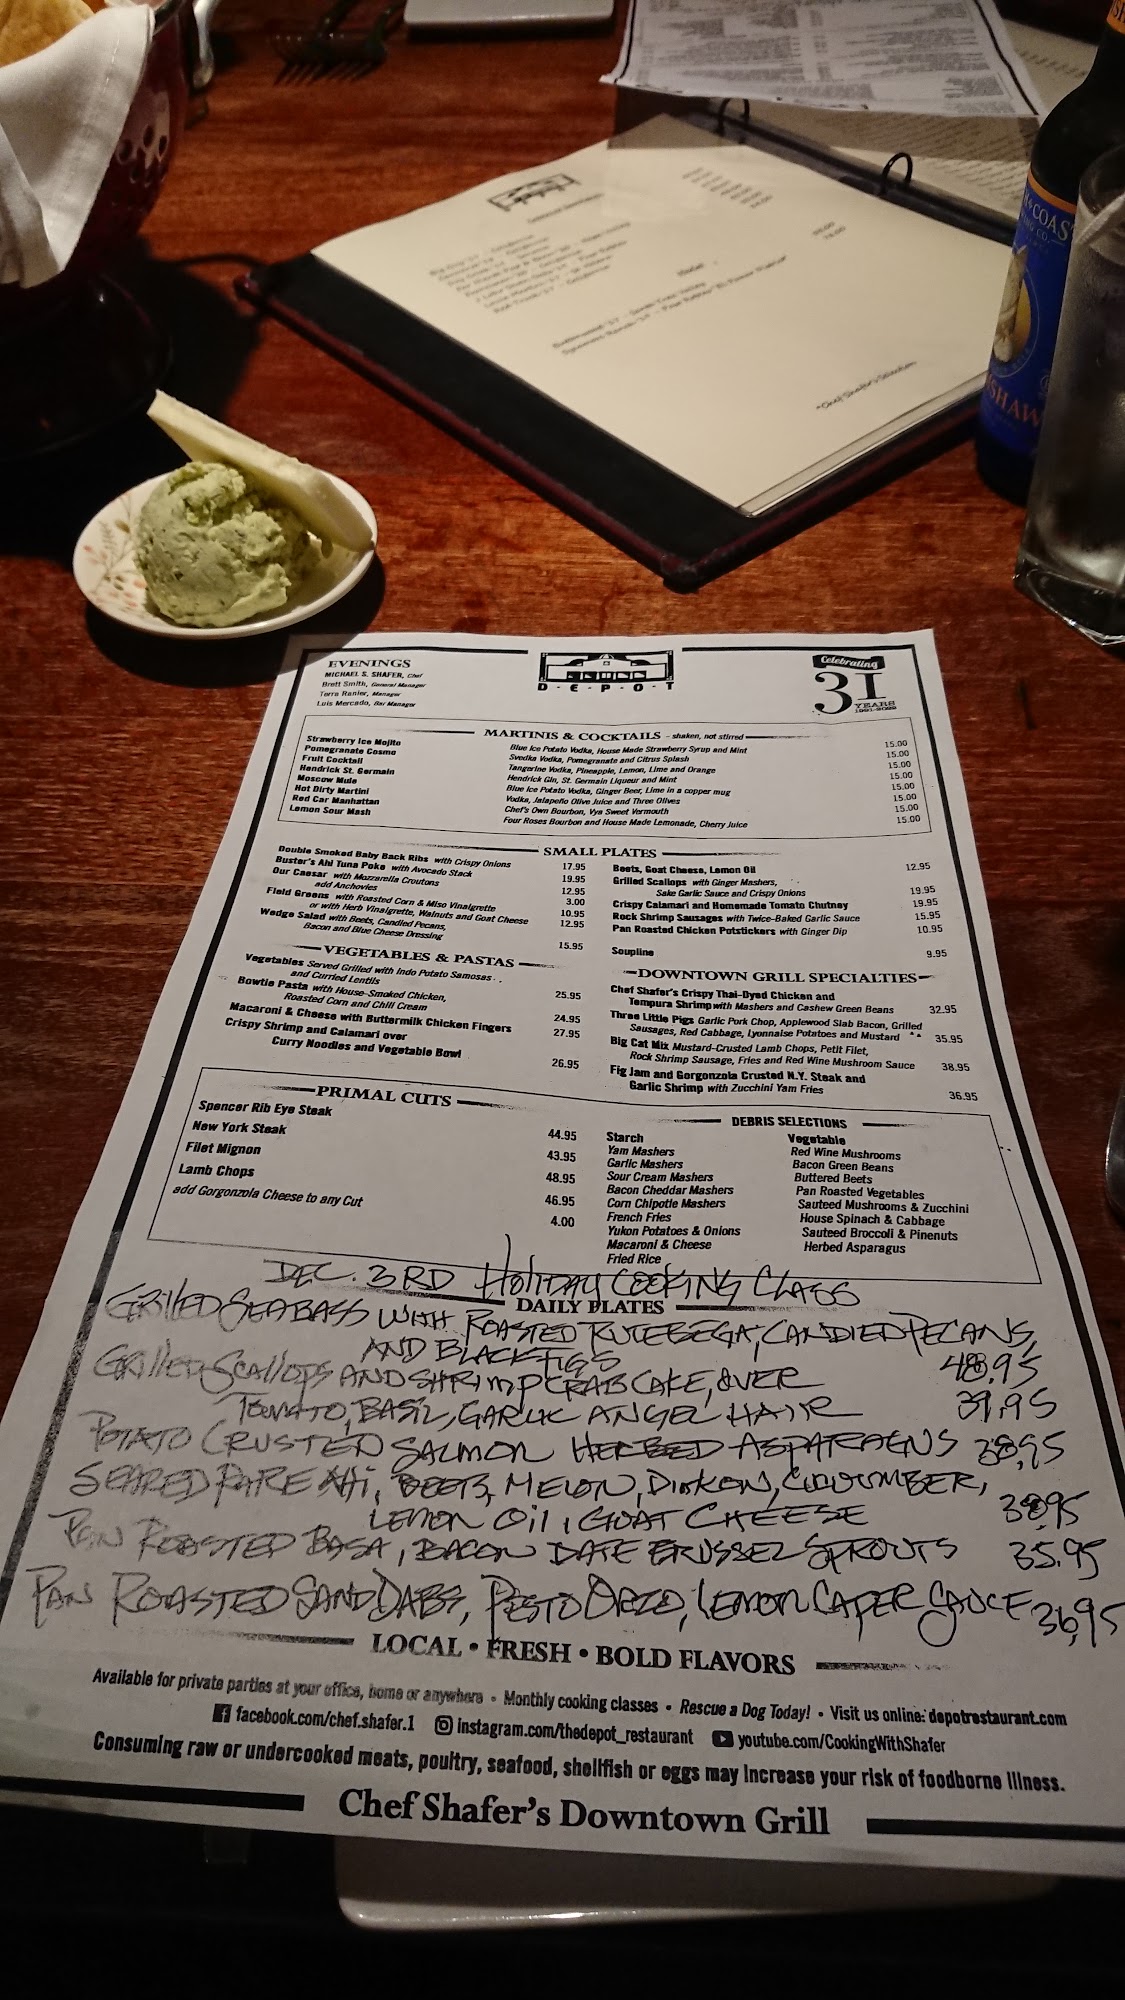 EVENINGS
MICHAEL S. SHAFER, Chef
Brett Smith, General Manager
Terra Ranier, Manager
Luis Mercado, Bar Manager
D·E·P·O·T
Celebrating
31
YEARS
MARTINIS & COCKTAILS - shaken, not stirred
Strawberry Ice Mojito Blue Ice Potato Vodka, House Made Strawberry Syrup and Mint 15.00
Pomegranate Cosmo Svedka Vodka, Pomegranate and Citrus Splash 15.00
Fruit Cocktail Tangerine Vodka, Pineapple, Lemon, Lime and Orange 15.00
Hendrick St. Germain Hendrick Gin, St. Germain Liqueur and Mint 15.00
Moscow Mule Blue Ice Potato Vodka, Ginger Beer, Lime in a copper mug 15.00
Hot Dirty Martini Vodka, Jalapeño Olive Juice and Three Olives 15.00
Red Car Manhattan Chef's Own Bourbon, Vya Sweet Vermouth 15.00
Lemon Sour Mash Four Roses Bourbon and House Made Lemonade, Cherry Juice 15.00
SMALL PLATES
Double Smoked Baby Back Ribs with Crispy Onions 17.95
Buster's Ahi Tuna Poke with Avocado Stack 19.95
Our Caesar with Mozzarella Croutons 12.95
add Anchovies 3.00
Field Greens with Roasted Corn & Miso Vinaigrette 10.95
or with Herb Vinaigrette, Walnuts and Goat Cheese 12.95
Wedge Salad with Beets, Candied Pecans,
Bacon and Blue Cheese Dressing 15.95
Beets, Goat Cheese, Lemon Oil 12.95
Grilled Scallops with Ginger Mashers,
Sake Garlic Sauce and Crispy Onions 19.95
Crispy Calamari and Homemade Tomato Chutney 19.95
Rock Shrimp Sausages with Twice-Baked Garlic Sauce 15.95
Pan Roasted Chicken Potstickers with Ginger Dip 10.95
Soupline 9.95
VEGETABLES & PASTAS
Vegetables Served Grilled with Indo Potato Samosas
and Curried Lentils 25.95
Bowtie Pasta with House-Smoked Chicken,
Roasted Corn and Chili Cream 24.95
Macaroni & Cheese with Buttermilk Chicken Fingers 27.95
Crispy Shrimp and Calamari over
Curry Noodles and Vegetable Bowl 26.95
DOWNTOWN GRILL SPECIALTIES
Chef Shafer's Crispy Thai-Dyed Chicken and
Tempura Shrimp with Mashers and Cashew Green Beans 32.95
Three Little Pigs Garlic Pork Chop, Applewood Slab Bacon, Grilled
Sausages, Red Cabbage, Lyonnaise Potatoes and Mustard 35.95
Big Cat Mix Mustard-Crusted Lamb Chops, Petit Filet,
Rock Shrimp Sausage, Fries and Red Wine Mushroom Sauce 38.95
Fig Jam and Gorgonzola Crusted N.Y. Steak and
Garlic Shrimp with Zucchini Yam Fries 36.95
PRIMAL CUTS
Spencer Rib Eye Steak 44.95
New York Steak 43.95
Filet Mignon 48.95
Lamb Chops 46.95
add Gorgonzola Cheese to any Cut 4.00
DEBRIS SELECTIONS
Starch
Yam Mashers
Garlic Mashers
Sour Cream Mashers
Bacon Cheddar Mashers
Corn Chipotle Mashers
French Fries
Yukon Potatoes & Onions
Macaroni & Cheese
Fried Rice
Vegetable
Red Wine Mushrooms
Bacon Green Beans
Buttered Beets
Pan Roasted Vegetables
Sauteed Mushrooms & Zucchini
House Spinach & Cabbage
Sauteed Broccoli & Pinenuts
Herbed Asparagus
DEC. 3RD HOLIDAY COOKING CLASS
DAILY PLATES
GRILLED SEABASS WITH ROASTED RUTEBEGA, CANDIED PECANS,
AND BLACK FIGS 48.95
GRILLED SCALLOPS AND SHRIMP CRAB CAKE, OVER
TOMATO, BASIL, GARLIC ANGEL HAIR 39.95
POTATO CRUSTED SALMON HERBED ASPARAGUS 38.95
SEARED RARE AHI, BEETS, MELON, DIAKON, CUCUMBER,
LEMON OIL, GOAT CHEESE 38.95
PAN ROASTED BASA, BACON DATE BRUSSEL SPROUTS 35.95
PAN ROASTED SAND DABS, PESTO ORZO, LEMON CAPER SAUCE 36.95
LOCAL • FRESH • BOLD FLAVORS
Available for private parties at your office, home or anywhere • Monthly cooking classes • Rescue a Dog Today! • Visit us online: depotrestaurant.com
facebook.com/chef.shafer.1 instagram.com/thedepot_restaurant youtube.com/CookingWithShafer
Consuming raw or undercooked meats, poultry, seafood, shellfish or eggs may increase your risk of foodborne illness.
Chef Shafer's Downtown Grill